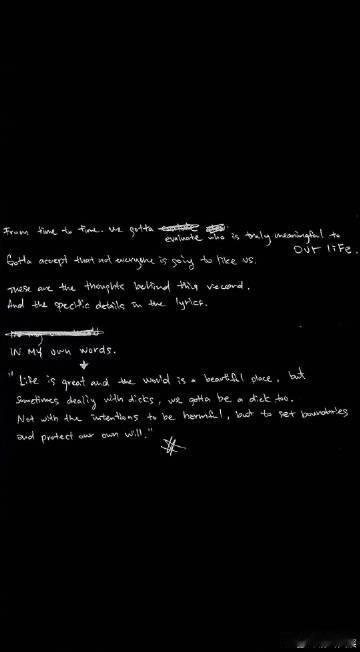 From time to time. We gotta
evaluate who is truly meaningful to
OUR LIFE.
Gotta accept that not everyone is going to like us.
These are the thoughts behind this record.
And the specific details in the lyrics.
IN MY OWN WORDS.
"Life is great and the world is a beautiful place, but
Sometimes dealing with dicks, we gotta be a dick too.
Not with the intentions to be harmful, but to set boundaries
and protect our own will."